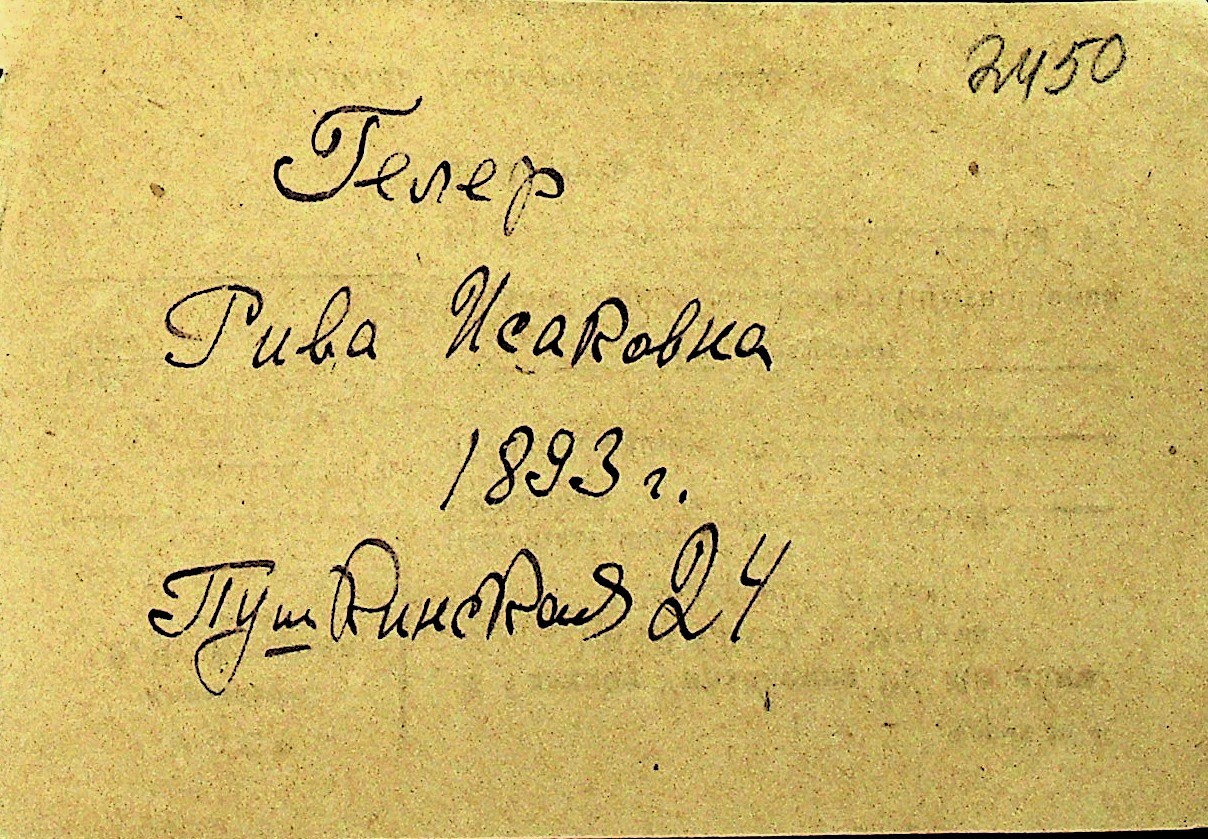 2450
Гелер
Рива Исаковна
1893 г.
Пушкинская 24